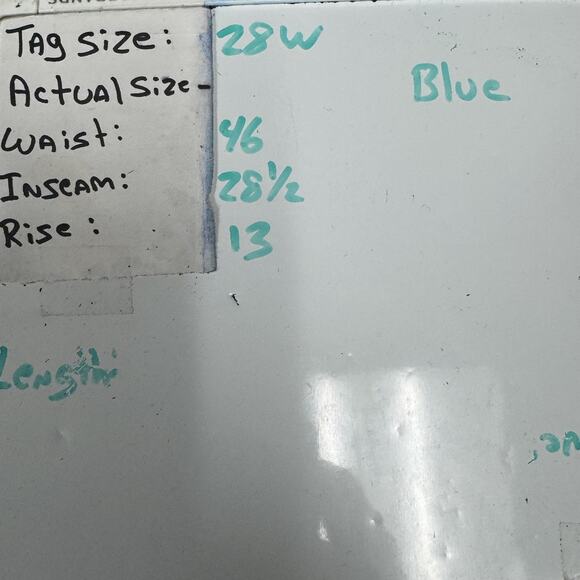 Tag Size: 28W
Blue
Actual Size-
Waist: 46
Inseam: 28 1/2
Rise: 13
Length